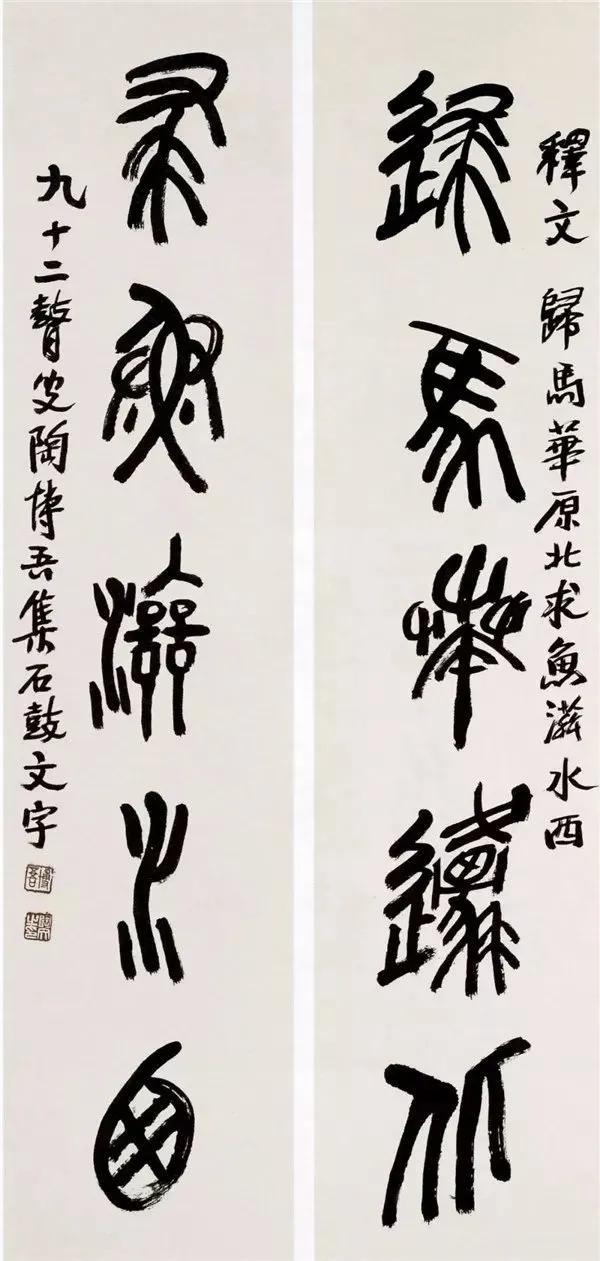 釋文 歸馬華原北求魚滋水西
歸馬華原北
求魚滋水西
九十二瞽叟陶博吾集石鼓文字